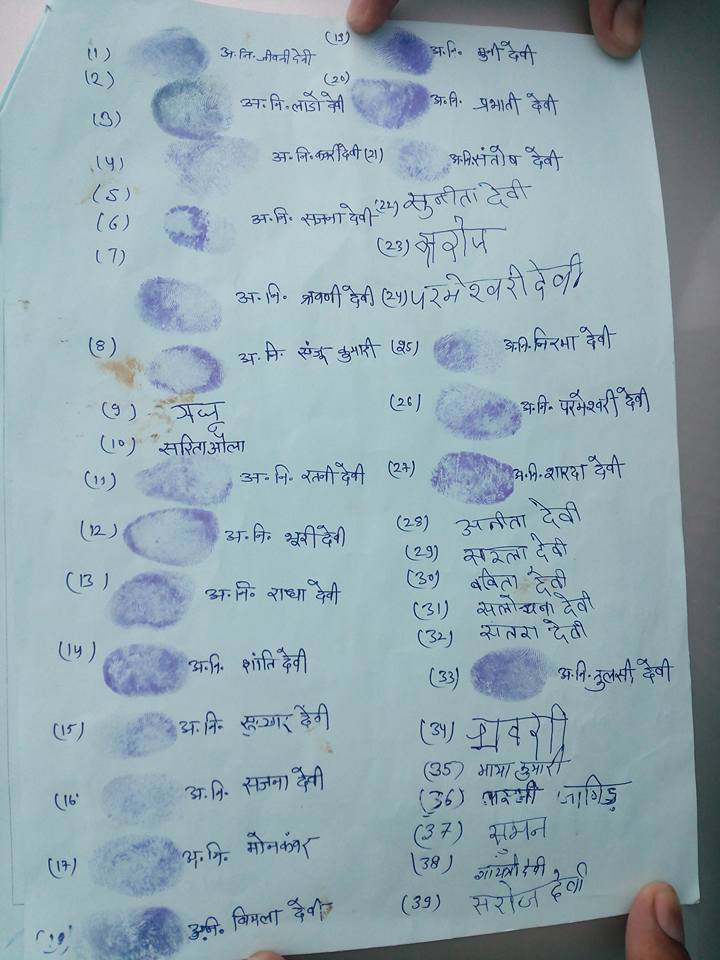 (1) अ. नि. जीवनी देवी
(2)
(3) अ. नि. लाडो देवी
(4) अ. नि. देवी
(5)
(6) अ. नि. सजना देवी
(7)
अ. नि. श्रवणी देवी
(8) अ. नि. संजू कुमारी
(9)
(10) सरिता ओला
(11) अ. नि. रतनी देवी
(12) अ. नि. भूरी देवी
(13) अ. नि. राधा देवी
(14) अ. नि. शांति देवी
(15) अ. नि. देवी
(16) अ. नि. सजना देवी
(17) अ. नि. मोनकंवर
(18) अ. नि. विमला देवी
(19) अ. नि. मुनी देवी
(20) अ. नि. प्रभाती देवी
(21) अ. नि. संतोष देवी
(22) सुनीता देवी
(23) सरोज
(24) परमेश्वरी देवी
(25) अ. नि. निरमा देवी
(26) अ. नि. परमेश्वरी देवी
(27) अ. नि. शारदा देवी
(28) अनीता देवी
(29) सरला देवी
(30) बबिता देवी
(31) सलोचना देवी
(32) सतरा देवी
(33) अ. नि. तुलसी देवी
(34) श्रवणी
(35) माया कुमारी
(36) जांगिड़
(37) सुमन
(38) गायत्री देवी
(39) सरोज देवी